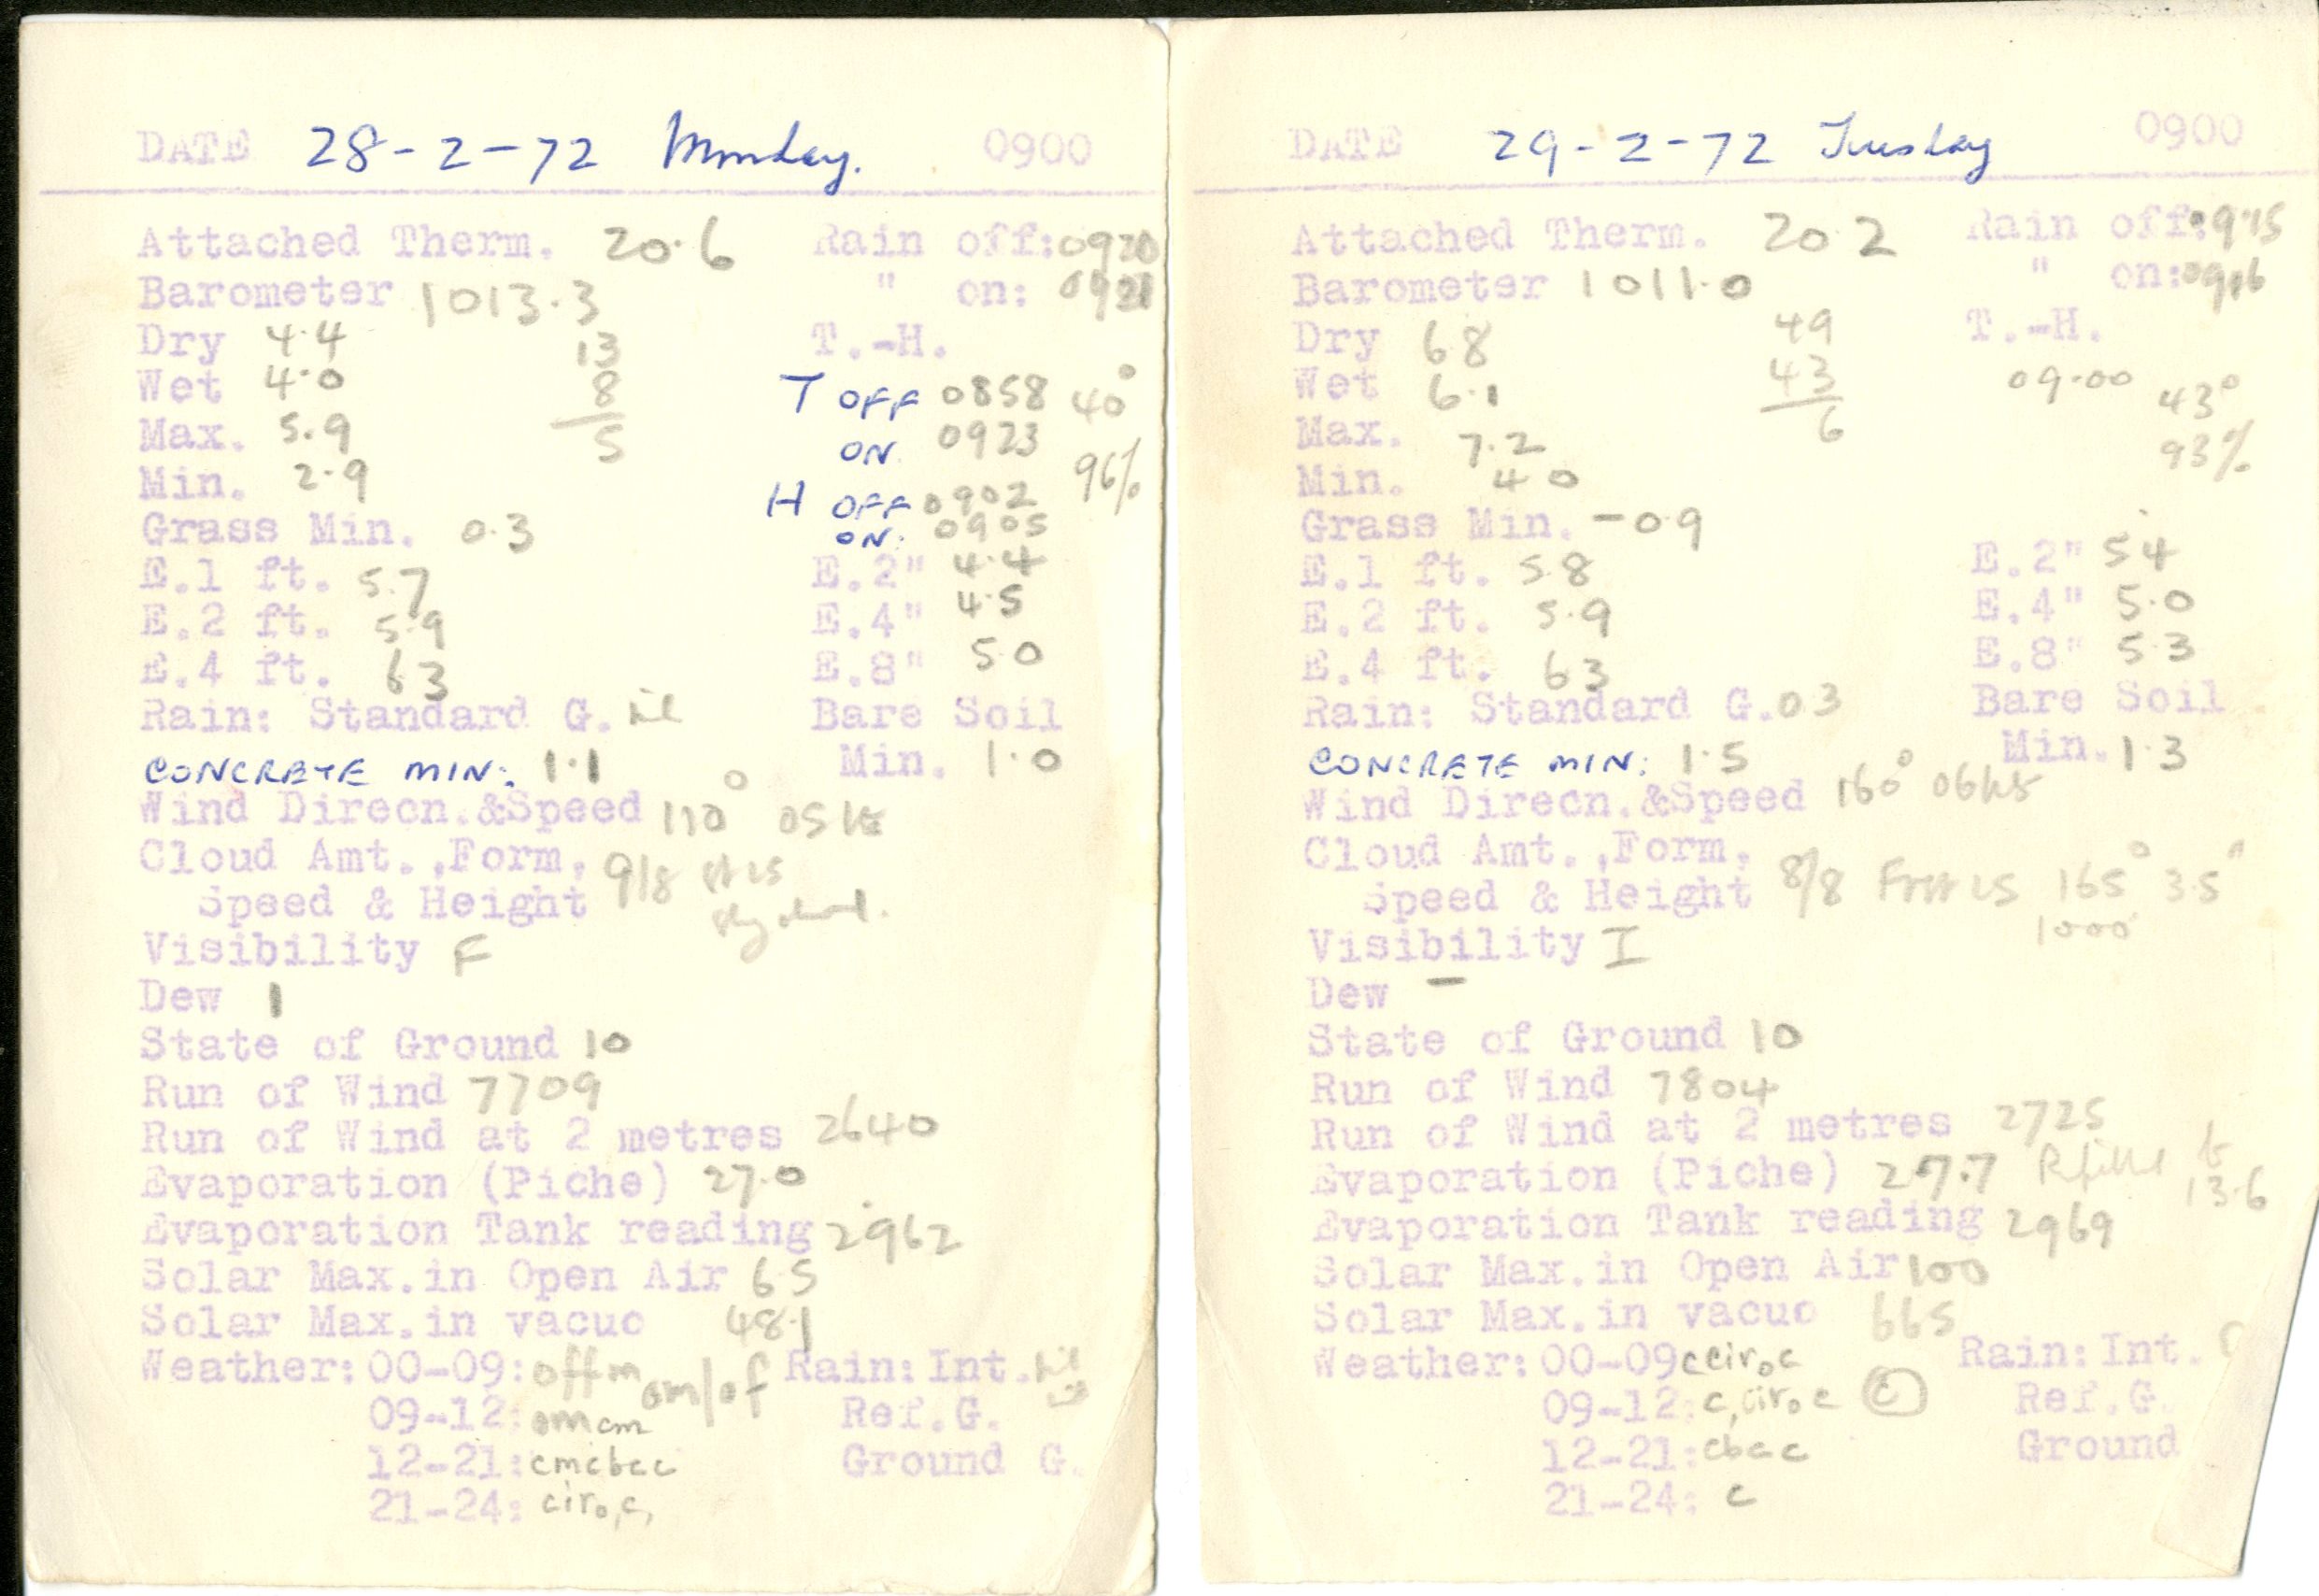 DATE 28-2-72 Monday. 0900
Attached Therm. 20.6 Rain off: 0920
Barometer 1013.3 " on: 0921
Dry 4.4 13 T.-H.
Wet 4.0 8 T OFF 0858 40°
Max. 5.9 5 ON 0923
Min. 2.9 H OFF 0902 96%
Grass Min. 0.3 ON: 0905
E.1 ft. 5.7 E.2" 4.4
E.2 ft. 5.9 E.4" 4.5
E.4 ft. 63 E.8" 50
Rain: Standard G. nil Bare Soil
CONCRETE MIN: 1.1 Min. 1.0
Wind Direcn.&Speed 110° 05 kts
Cloud Amt.,Form, 9/8
Speed & Height
Visibility F
Dew 1
State of Ground 10
Run of Wind 7709
Run of Wind at 2 metres 2640
Evaporation (Piche) 27.0
Evaporation Tank reading 2962
Solar Max.in Open Air 6.5
Solar Max.in vacuo 48.1
Weather: 00-09: offm om/of Rain: Int. nil
09-12: omcm Ref.G.
12-21: cmcbcc Ground G.
21-24: ciro,c,
DATE 29-2-72 Tuesday 0900
Attached Therm. 20 2 Rain off: 0915
Barometer 1011.0 " on: 0916
Dry 68 49 T.-H.
Wet 6.1 43 09.00 43°
Max. 7.2 6 93%
Min. 40
Grass Min. -09
E.1 ft. 58 E.2" 54
E.2 ft. 5.9 E.4" 5.0
E.4 ft. 63 E.8" 53
Rain: Standard G. 03 Bare Soil
CONCRETE MIN: 1.5 Min. 1.3
Wind Direcn.&Speed 160° 06kts
Cloud Amt.,Form,
Speed & Height 8/8 165° 3.5"
Visibility I 1000'
Dew -
State of Ground 10
Run of Wind 7804
Run of Wind at 2 metres 2725
Evaporation (Piche) 27.7 Refilled to 13.6
Evaporation Tank reading 2969
Solar Max.in Open Air 100
Solar Max.in vacuo 665
Weather: 00-09 cciroc Rain: Int.
09-12: c,ciroc c Ref.G.
12-21: cbcc Ground
21-24: c